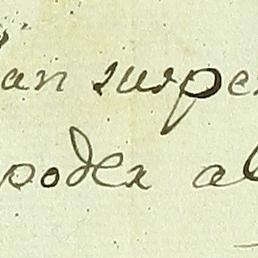 an suspe
poder al